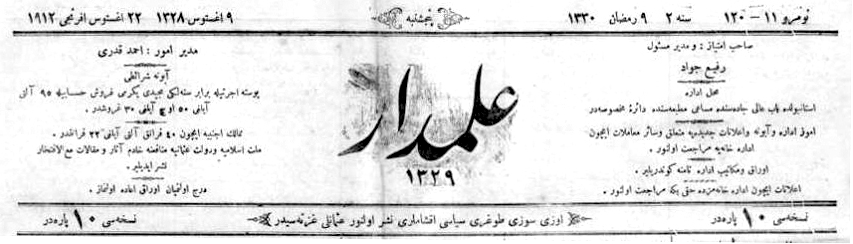 نومرو ١١ — ١٢٠ سنه ٢ ٩ رمضان ١٣٣٠ پنجشنبه ٩ اغستوس ١٣٢٨ ٢٢ اغستوس افرنجی ١٩١٢
صاحب امتیاز : و مدیر مسئول
رفیع جواد
محل اداره
استانبولده باب عالی جاده‌سنده مساعی مطبعه‌سنده دائرۀ مخصوصه‌در
امور اداره و آبونه و اعلانات جدیدیه متعلق وسائر معاملات ایچون
اداره خانه‌یه مراجعت اولنور .
اوراق و مکاتیب اداره نامنه کوندریلیر .
اعلانات ایچون اداره خانه‌مزده حقی بکه مراجعت اولنور .
علمدار
١٣٢٩
مدیر امور : احمد قدری
آبونه شرائطی
پوسته اجرتیله برابر سنه‌لکی مجیدی یکرمی غروش حسابیله ٩٥ آلتی
آیلغی ٥٠ اوچ آیلغی ٣٠ غروشدر .
ممالک اجنبیه ایچون ٤٠ فرانق آلتی آیلغی ٢٢ فرانقدر .
ملت اسلامیه و دولت عثمانیه منافعنه خادم آثار و مقالات مع الافتخار
نشر ایدیلیر .
درج اولنمیان اوراق اعاده اولنماز .
نسخه‌سی ١٠ پاره‌در اوزی سوزی طوغری سیاسی اقشاملری نشر اولنور عثمانلی غزته‌سیدر نسخه‌سی ١٠ پاره‌در